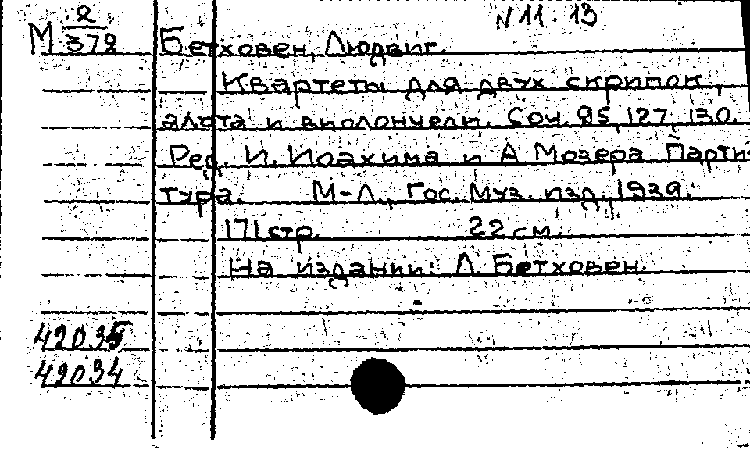 N 11. 13
М 2/372 Бетховен, Людвиг.
Квартеты для двух скрипок,
альта и виолончели. Соч. 95, 127, 130.
Ред. И. Иоахима и А Мозера Парти-
тура. М-Л., Гос. муз. изд., 1939.
171 стр. 22 см.
На издании: Л Бетховен.
42035
42034